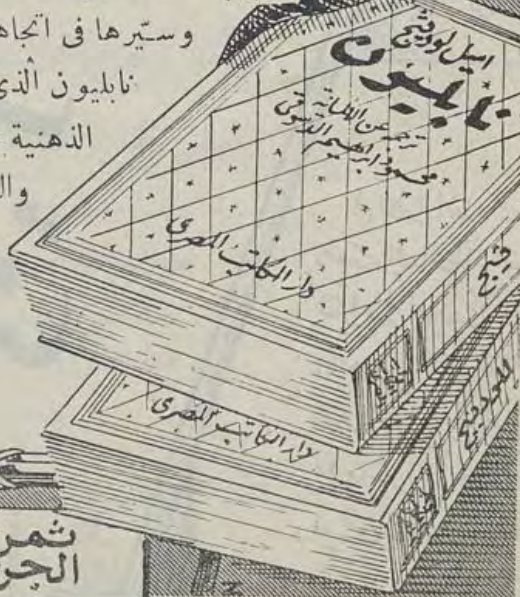 وسيّرها فى اتجاه
نابليون الذى
الذهنية
وال
اميل لودفيج
نابليون
ترجمه عن الألمانية
محمود ابراهيم الدسوقى
دار الكاتب المصرى
دار الكاتب المصرى
لودفيج
ثمر
الجز